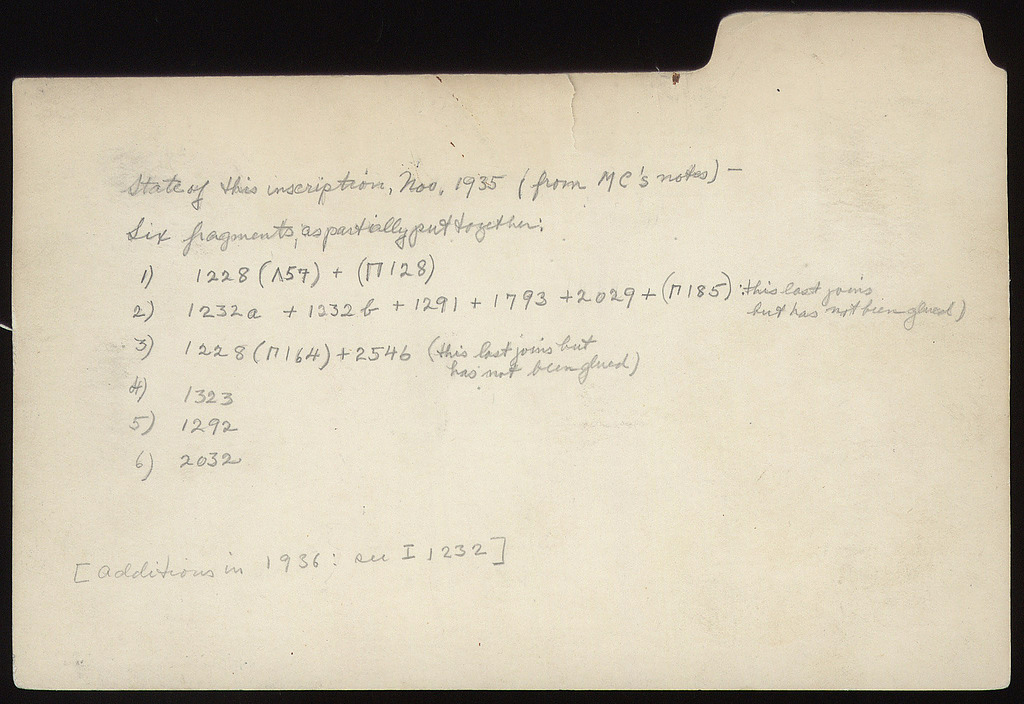 State of this inscription, Nov. 1935 (from MC's notes) —
Six fragments, as partially put together:
1) 1228 (Λ57) + (Π128)
2) 1232a + 1232b + 1291 + 1793 + 2029 + (Π185) : this last joins
but has not been glued)
3) 1228 (Π164) + 2546 (this last joins but
has not been glued)
4) 1323
5) 1292
6) 2032
[additions in 1936: see I 1232]